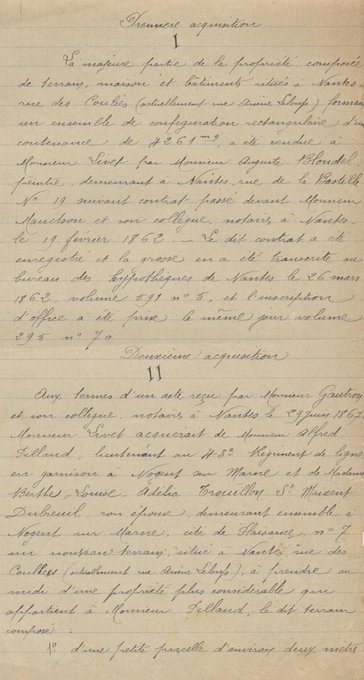 Première acquisition
I
La majeure partie de la propriété composée
de terrains, maison et bâtiments situés à Nantes
rue des Coulées (actuellement rue Arsène Leloup) formant
un ensemble de configuration rectangulaire d'une
contenance de 4261 mq, a été vendue à
Monsieur Livet par Monsieur Auguste Blondel,
peintre, demeurant à Nantes, rue de la Bastille
No 19 suivant contrat passé devant Monsieur
et son collègue, notaires à Nantes
le 19 février 1862. — Le dit contrat a été
enregistré et la grosse en a été transcrite au
bureau des hypothèques de Nantes le 26 mars
1862, volume 891 no 5, et l'inscription
d'office a été prise le même jour volume
295 no 70
Deuxième acquisition
II
Aux termes d'un acte reçu par Monsieur Gautron
et son collègue notaires à Nantes le 29 juin 1867
Monsieur Livet acquérait de Monsieur Alfred
Filland, lieutenant au Régiment de ligne
en garnison à Nogent sur Marne et de Madame
Berthe, Louise, Adélia Trouillon St Maixent
Dubreuil, son épouse, demeurant ensemble à
Nogent sur Marne, cité de Plaisance, no 7
un nouveau terrain, situé à Nantes, rue des
Coulées (actuellement rue Arsène Leloup), à prendre au
midi d'une propriété plus considérable qui
appartient à Monsieur Filland, le dit terrain
composé :
1o d'une petite parcelle d'environ deux mètres